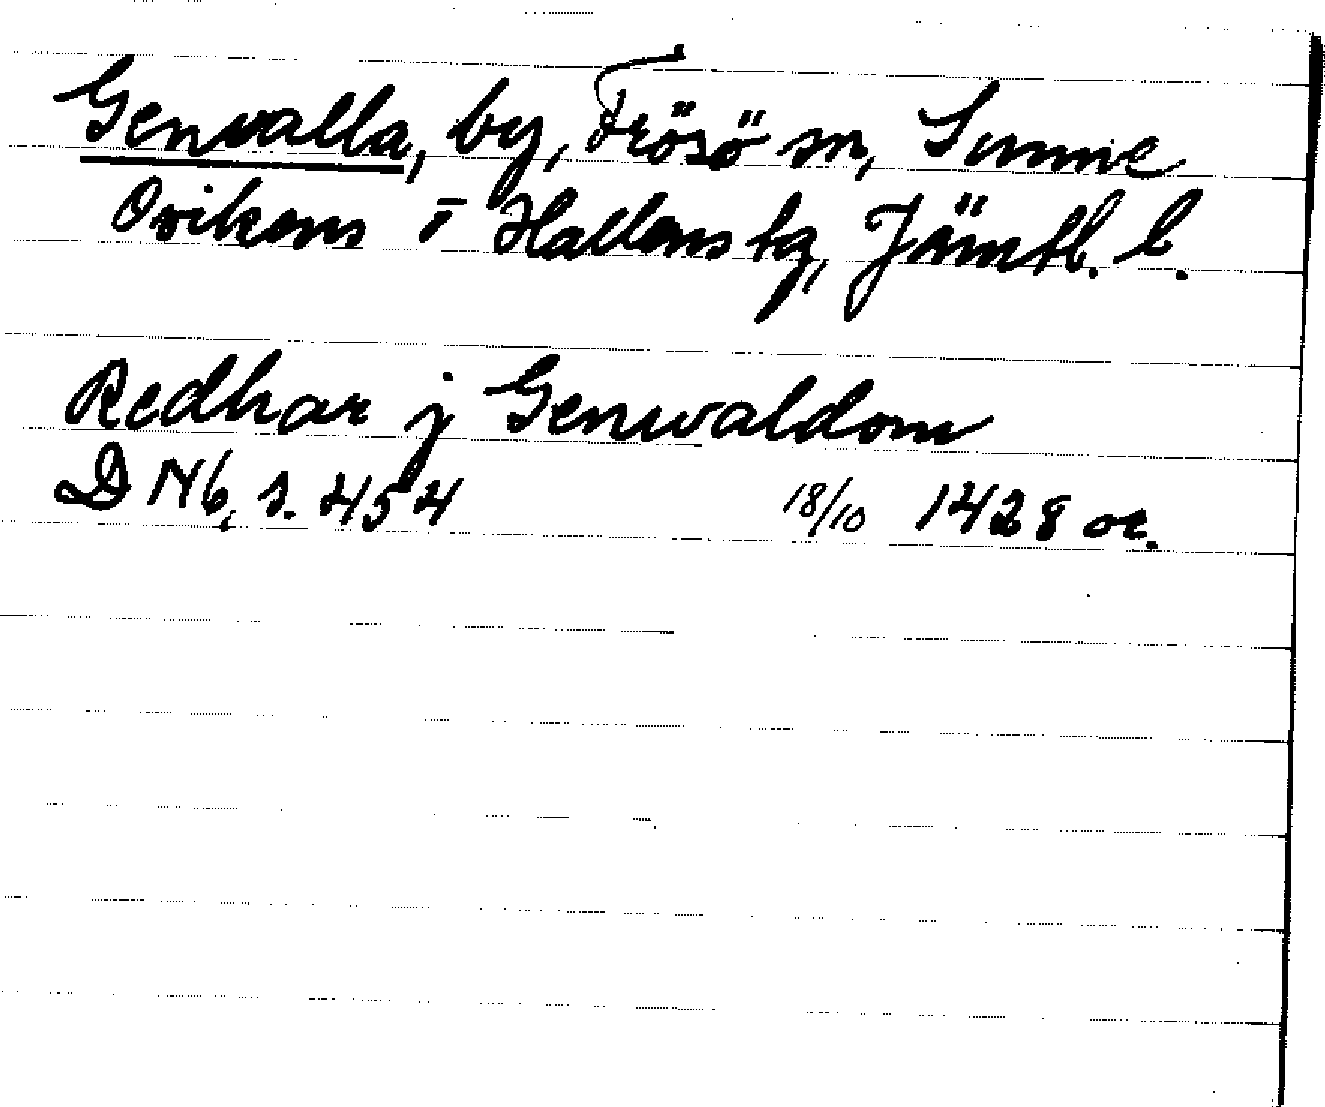 Genvalla, by, Frösö sn, Sunne
Ovikens o Hallens tg, Jämtl. l.
Redhar j Genwaldom
DN 6, s. 454 18/10 1428 or.